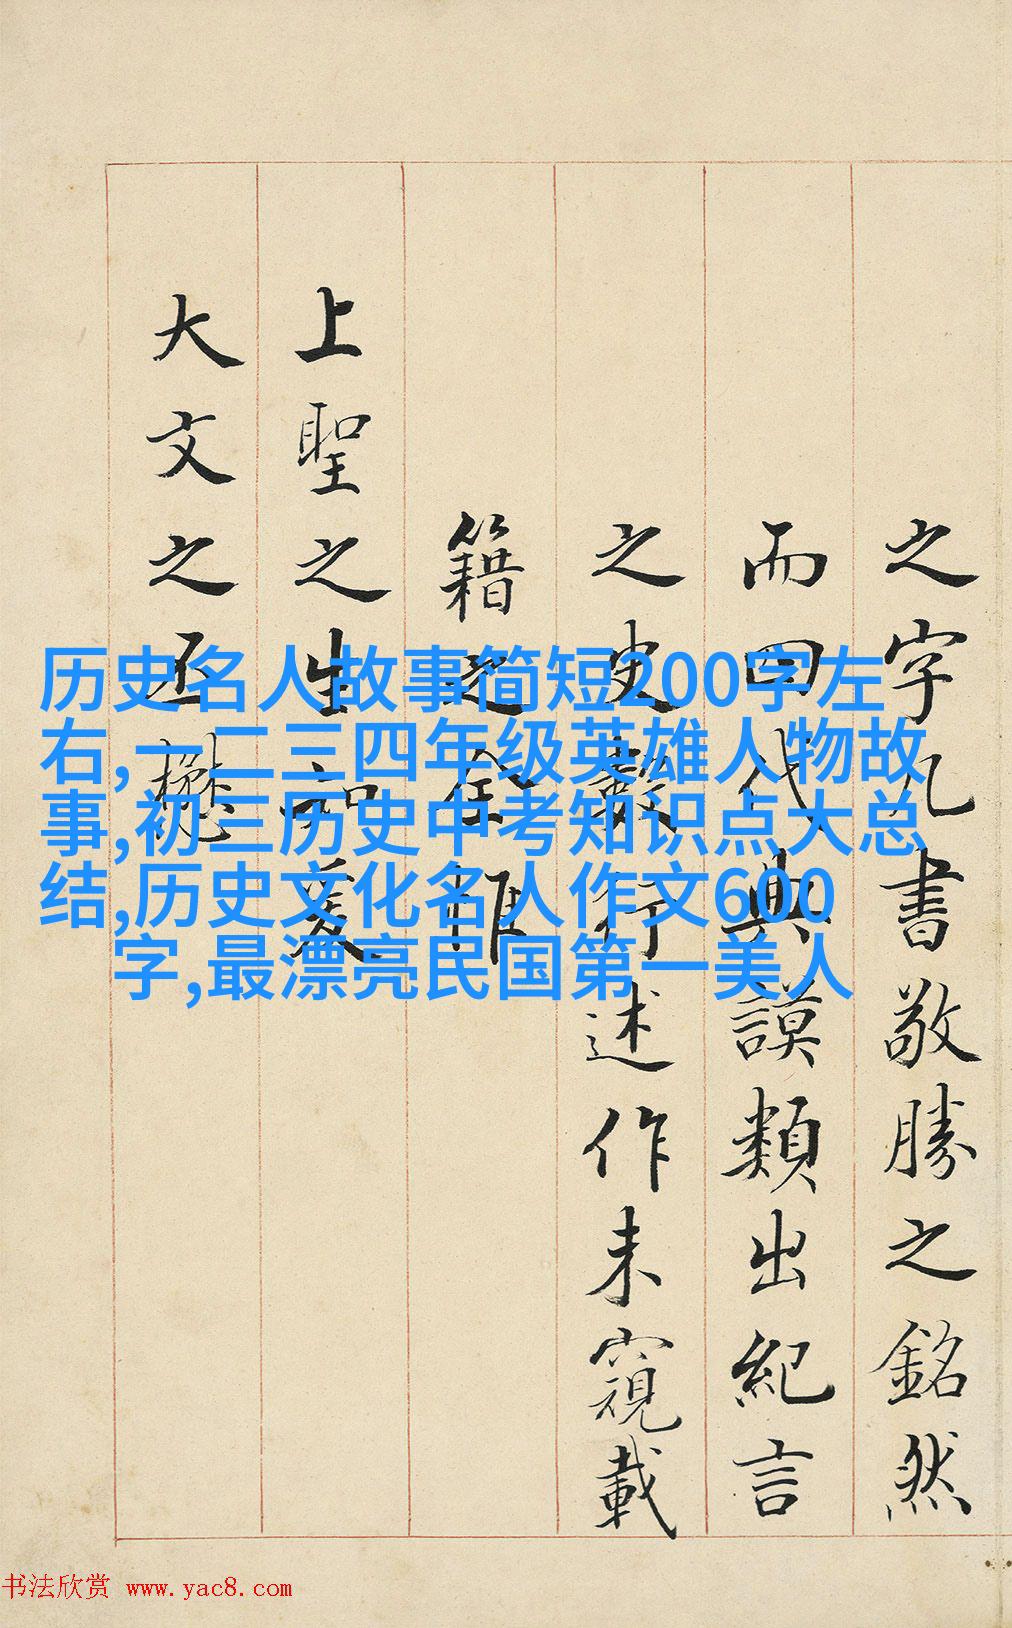 之字九書敬勝之銘然
而四代典謨類出紀言
之史數行述作未窺載
籍之全惟
上聖之生知爰
大文之丕懋
历史名人故事简短200字左
右,一二三四年级英雄人物故
事,初三历史中考知识点大总
结,历史文化名人作文600
字,最漂亮民国第一美人
书法欣赏 www.yac8.com